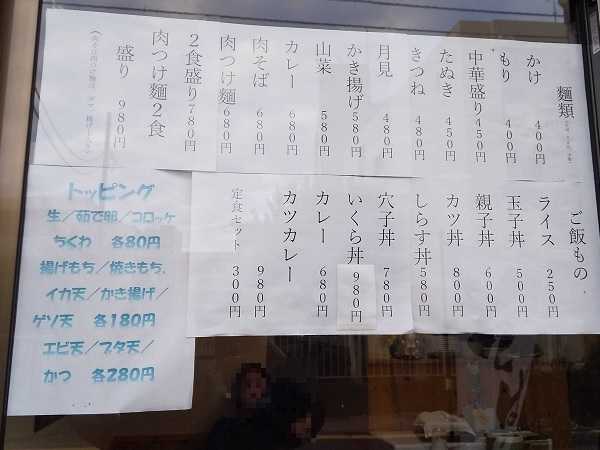 麺類
かけ 400円
もり 400円
中華盛り 450円
たぬき 450円
きつね 480円
月見 480円
かき揚げ 580円
山菜 580円
カレー 680円
肉そば 680円
肉つけ麺 680円
2食盛り 780円
肉つけ麺2食
盛り 980円
ご飯もの
ライス 250円
玉子丼 500円
親子丼 600円
カツ丼 800円
しらす丼 580円
穴子丼 780円
いくら丼 980円
カレー 680円
カツカレー
980円
定食セット 300円
トッピング
生/茹で卵/コロッケ
ちくわ 各80円
揚げもち/焼きもち、
イカ天/かき揚げ/
ゲソ天 各180円
エビ天/ブタ天/
かつ 各280円